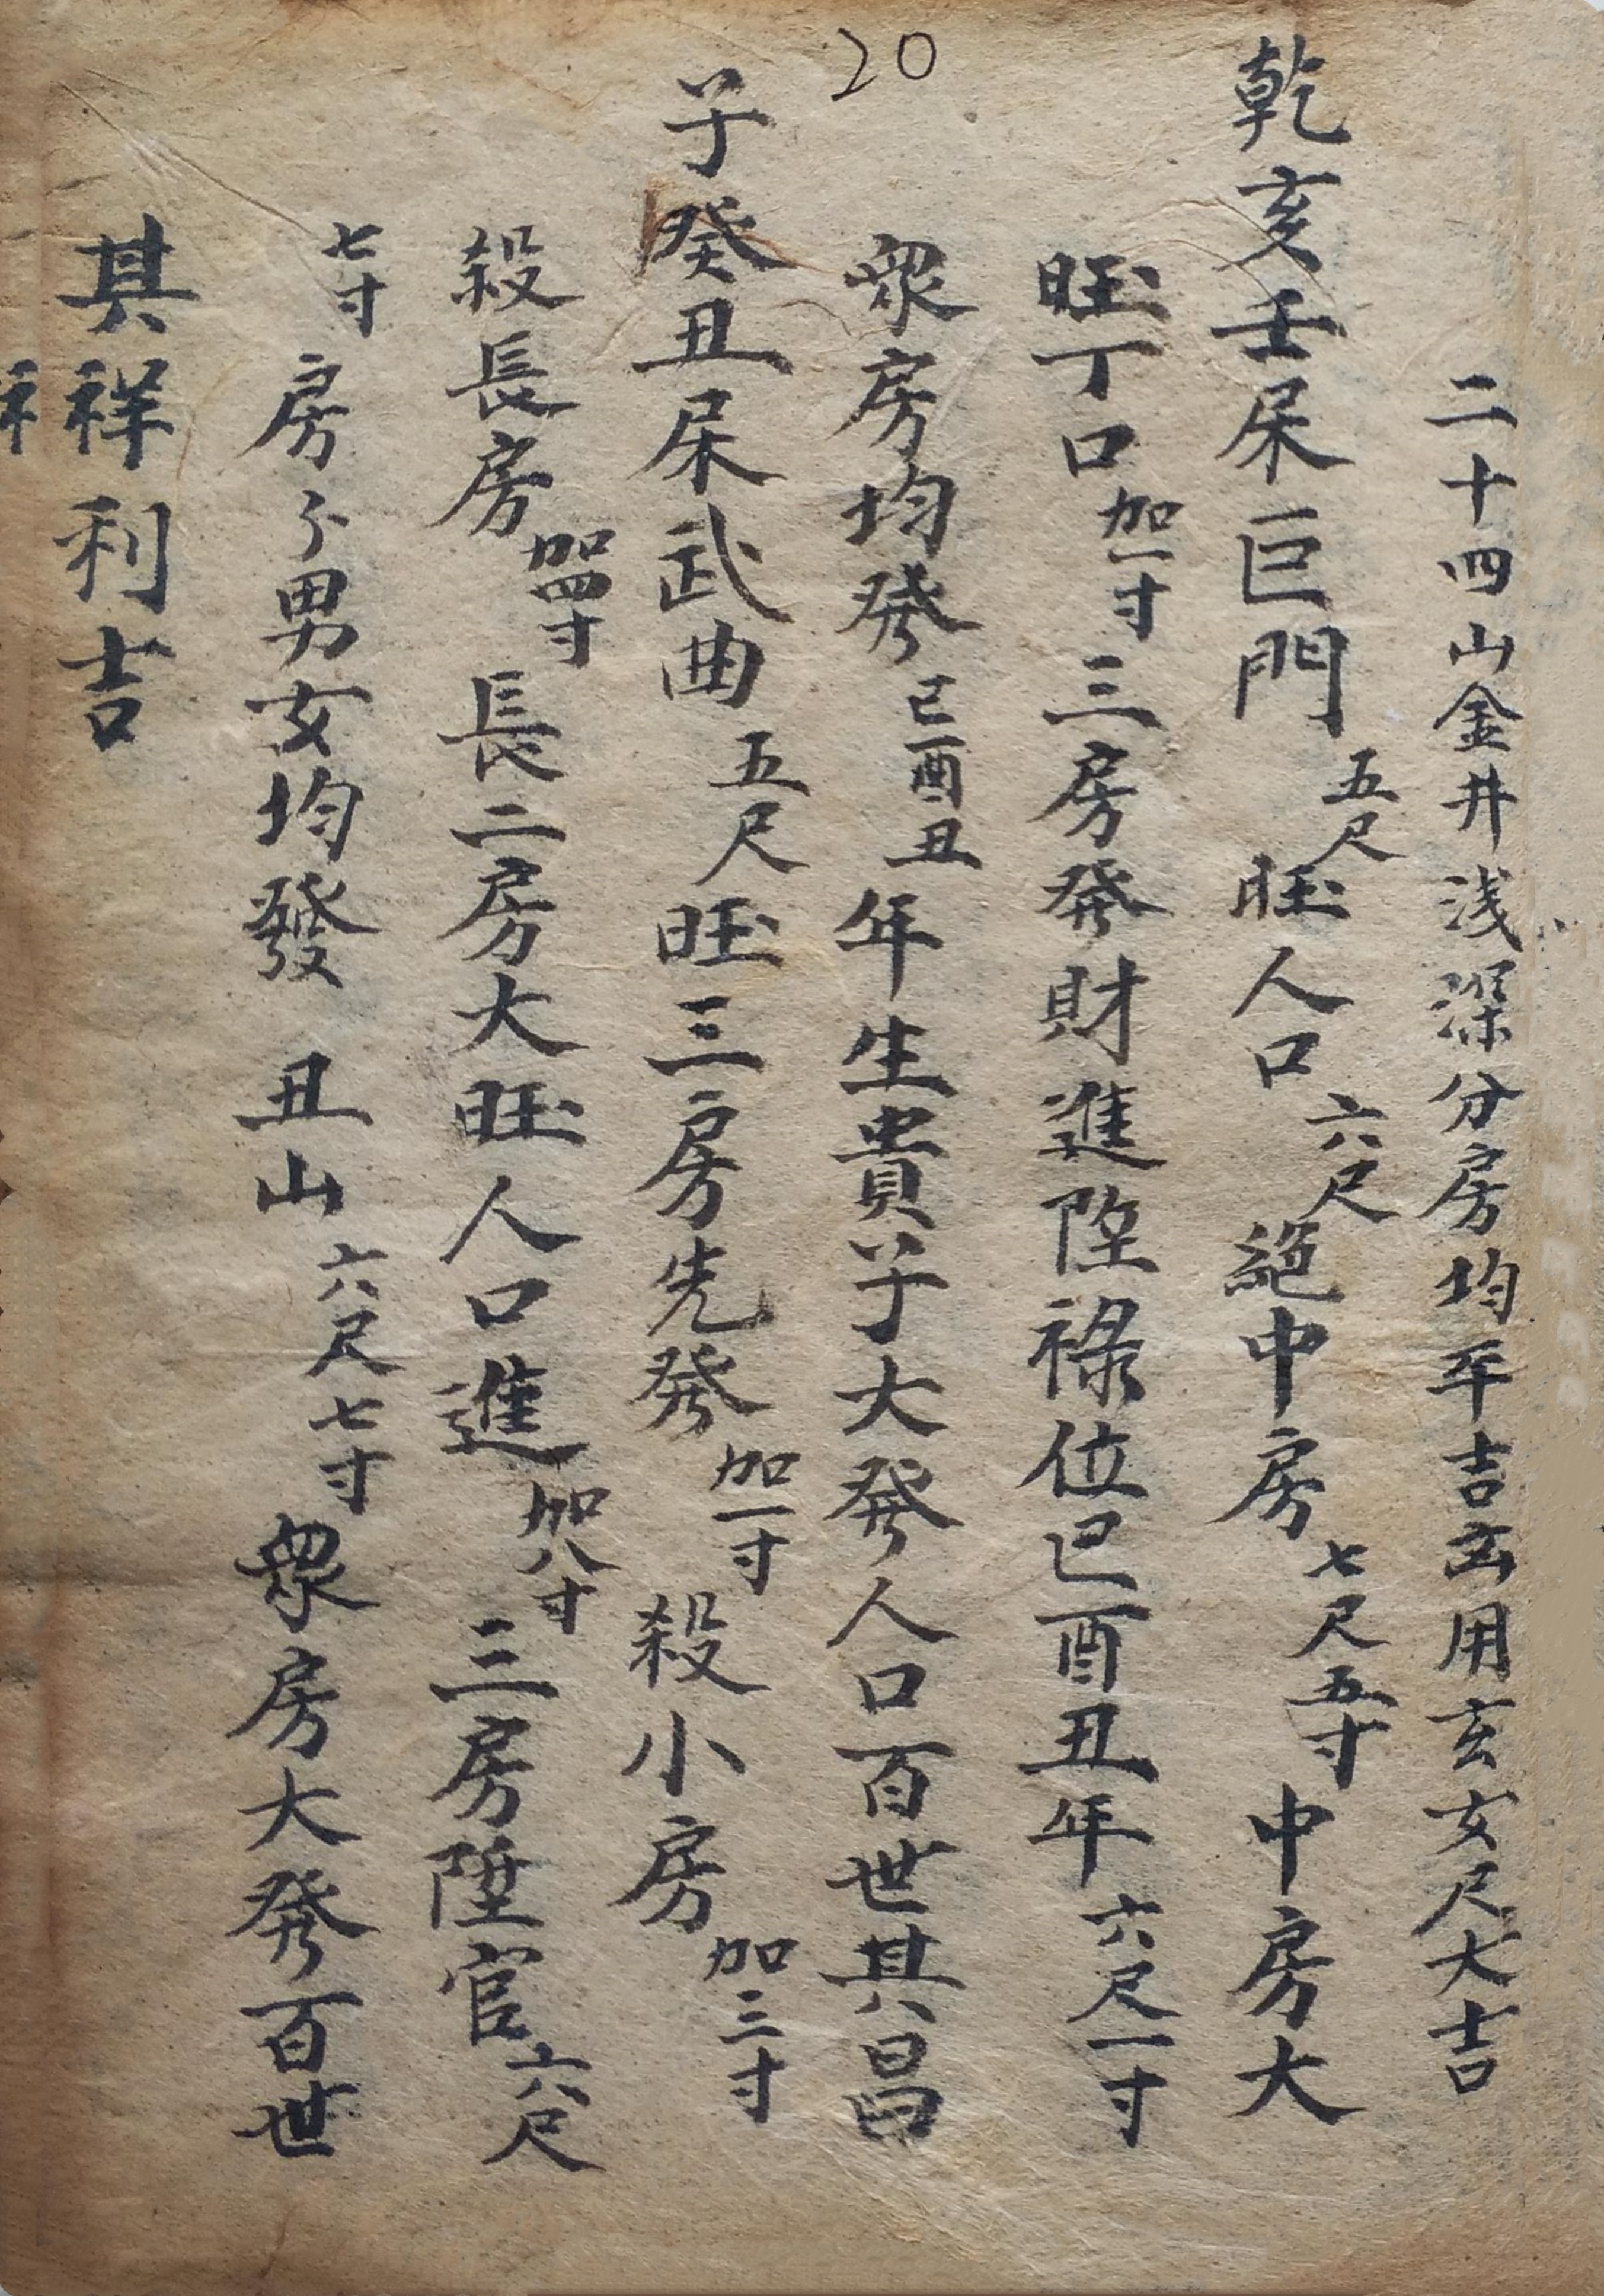 20
二十四山金井浅深分房均平吉凶用玄女尺大吉
乾亥壬屎巨門五尺旺人口六尺絕中房七尺五寸中房大
旺丁口加一寸三房発財進陞禄位巳酉丑年六尺一寸
衆房均発巳酉丑年生貴子大発人口百世其昌
子癸丑屎武曲五尺旺三房先発加一寸殺小房加三寸
殺長房加四寸長二房大旺人口進加八寸三房陞官六尺
七寸房々男女均發丑山六尺七寸衆房大発百世
其祥利吉